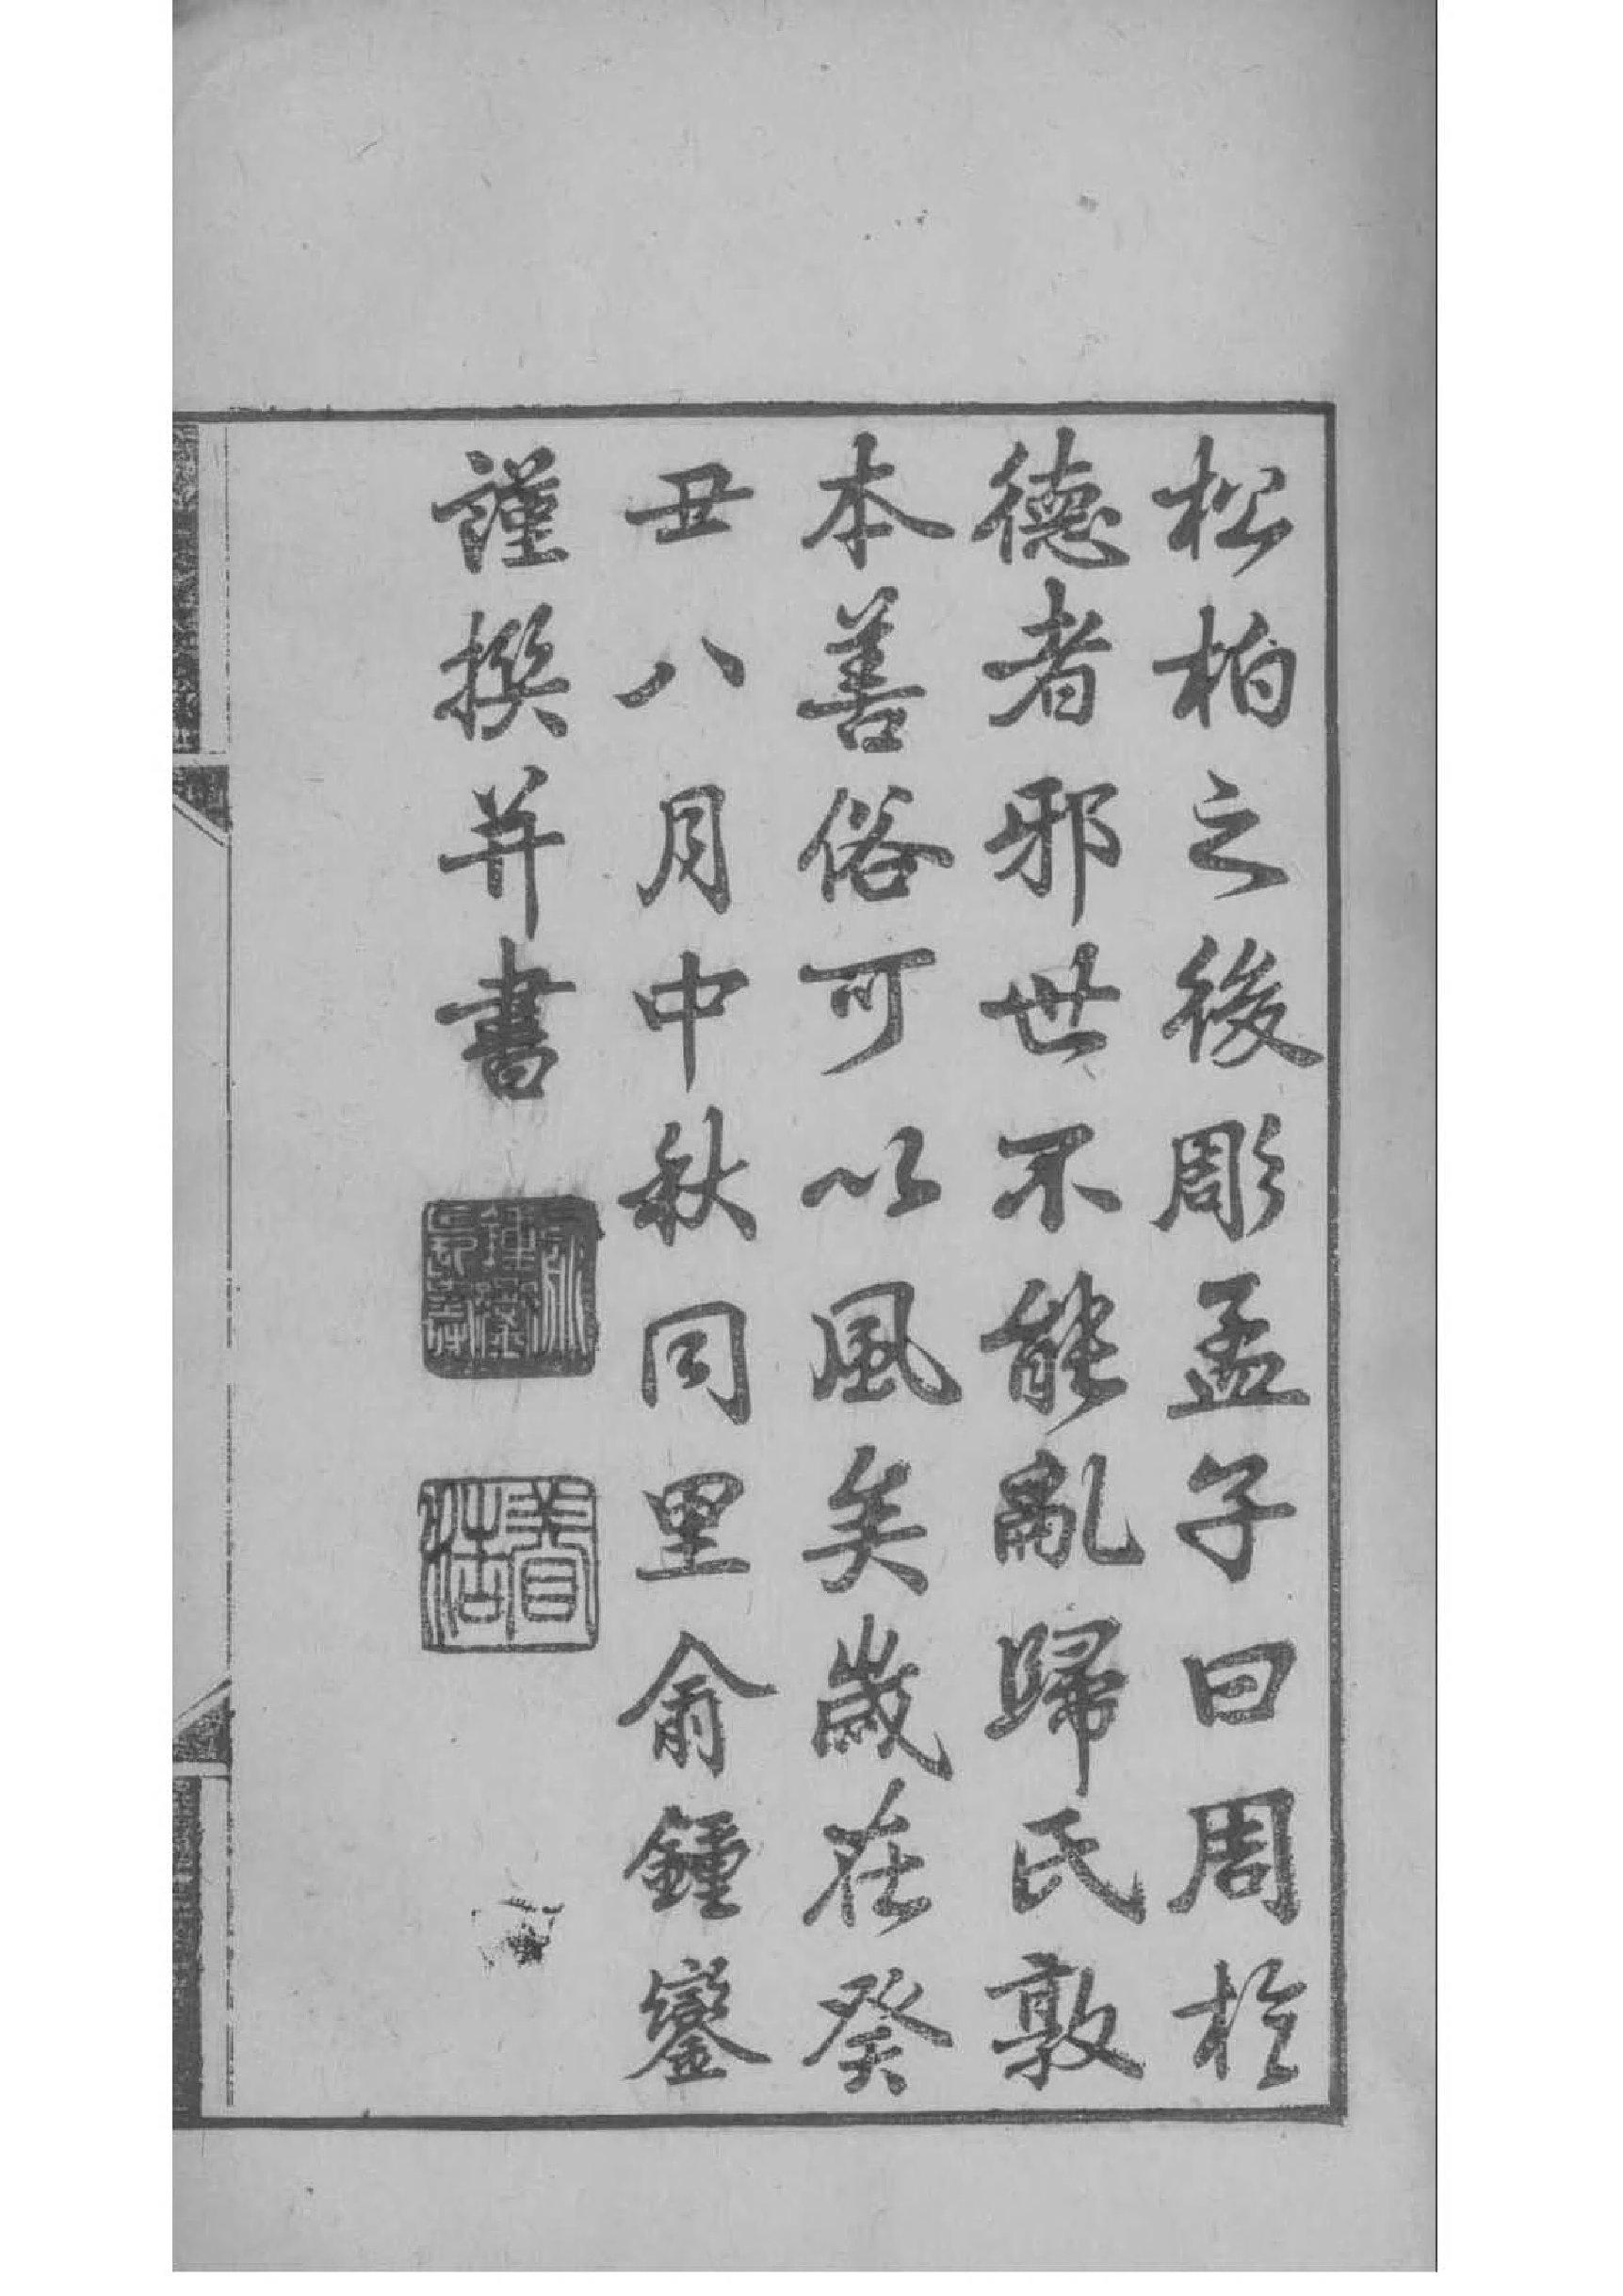 松柏之後彫孟子曰周於
德者邪世不能亂歸氏敦
本善俗可以風矣歲在癸
丑八月中秋同里俞鍾鑾
謹撰并書